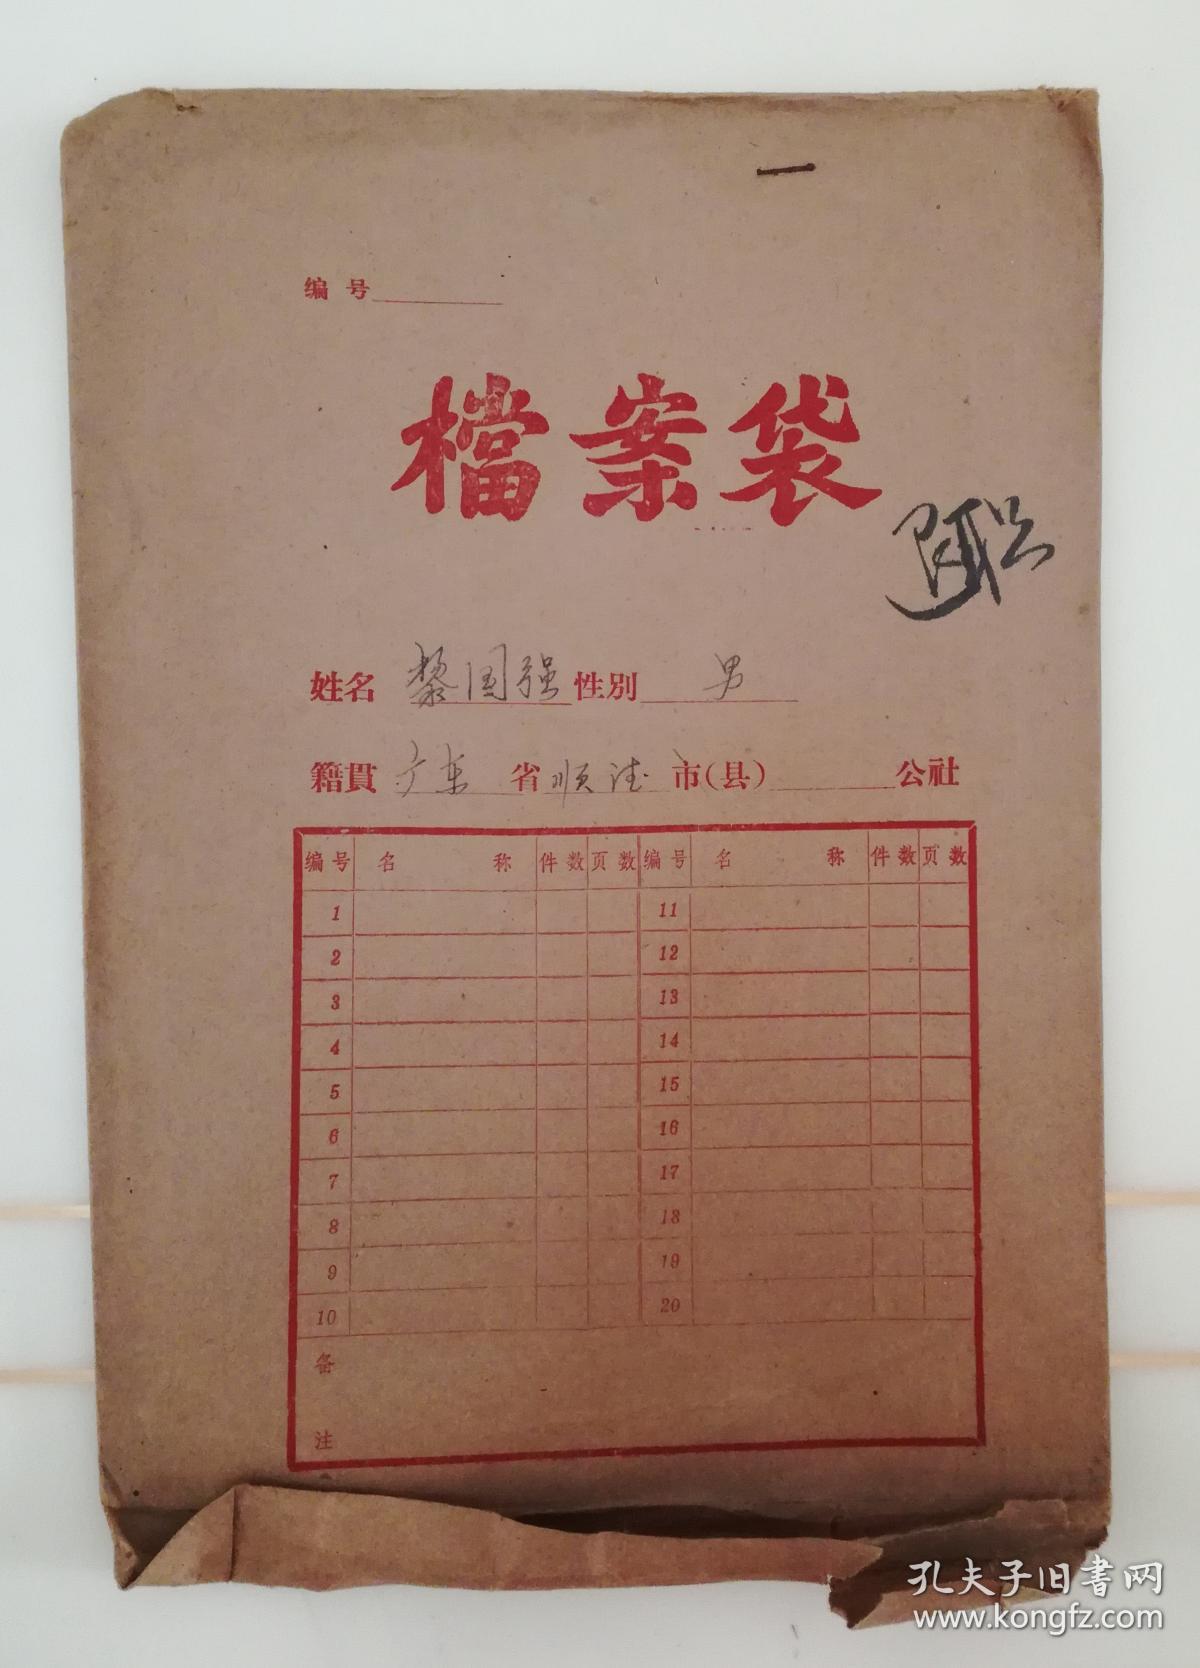 编号
檔案袋
退职
姓名 黎国强 性别 男
籍貫 广东 省 顺德 市(县) 公社
编号 名称 件数 页数 编号 名称 件数 页数
1 11
2 12
3 13
4 14
5 15
6 16
7 17
8 18
9 19
10 20
备注
孔夫子旧書网
www.kongfz.com